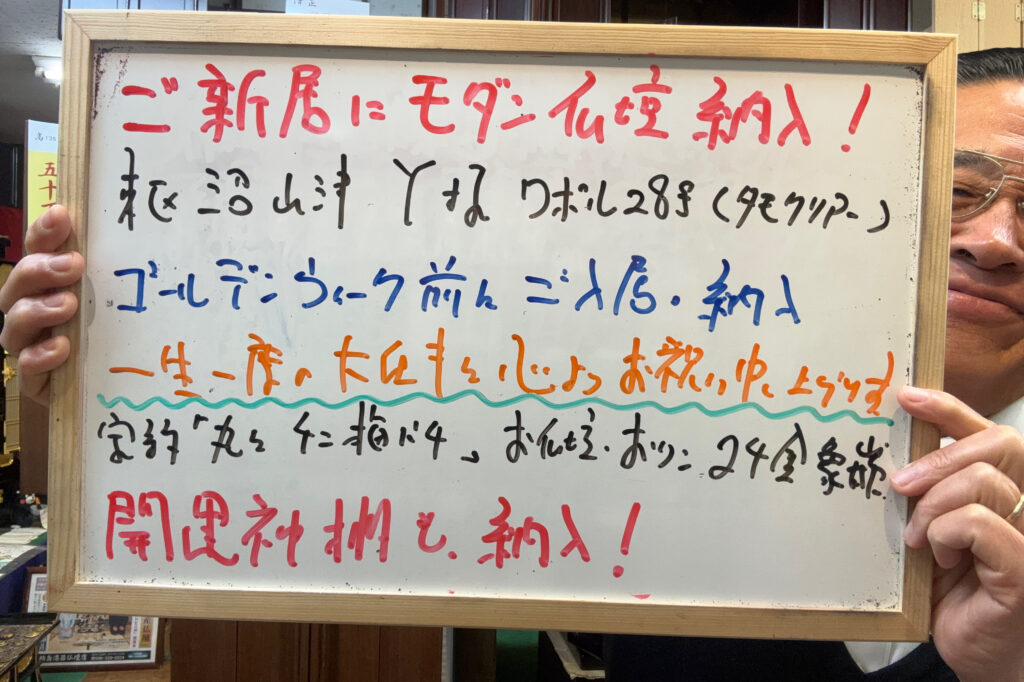 ご新居にモダン仏壇納入!
沼津 Y様 ワボル28号(タモクリアー)
ゴールデンウィーク前に ご入居・納入
一生一度の大仕事を心よりお祝い申し上げます
家紋「丸に 梅バチ」、お仏壇・おりん 24金象嵌
開運神棚も、納入!
五十